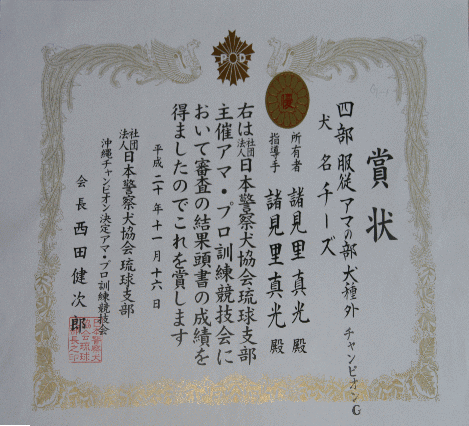 賞状
四部 服従 アマの部 犬種外 チャンピオンG
犬名 チーズ
所有者 諸見里真光 殿
指導手 諸見里真光 殿
優
P D
右は社団法人日本警察犬協会琉球支部
主催アマ・プロ訓練競技会に
おいて審査の結果頭書の成績を
得ましたのでこれを賞します
平成二十年十一月十六日
社団法人日本警察犬協会琉球支部
沖縄チャンピオン決定アマ・プロ訓練競技会
会長 西田健次郎